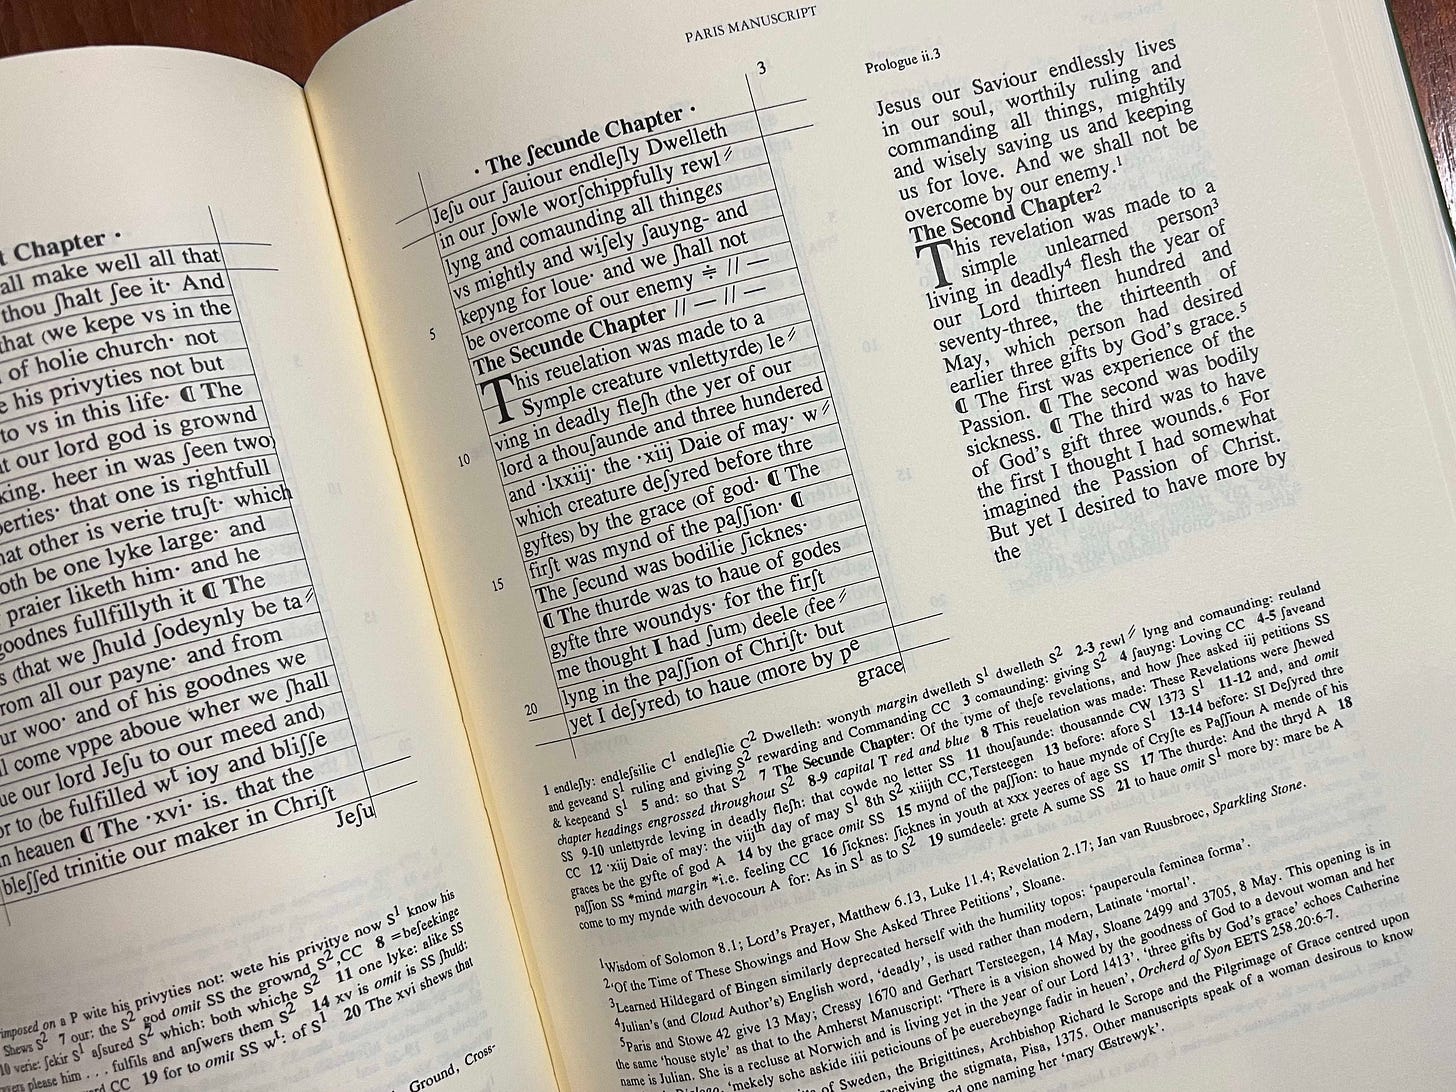 t Chapter ·
all make well all that
thou ſhalt ſee it· And
that (we kepe vs in the
of holie church· not
e his privyties not but
to vs in this life· ¶ The
t our lord god is grownd
king. heer in was ſeen two
perties· that one is rightfull
hat other is verie truſt· which
oth be one lyke large· and
praier liketh him· and he
goodnes fullfillyth it ¶ The
s (that we ſhuld ſodeynly be ta⸗
rom all our payne· and from
ur woo· and of his goodnes we
l come vppe aboue wher we ſhall
ue our lord Jeſu to our meed and)
or to (be fulfilled wᵗ ioy and bliſſe
n heauen ¶ The ·xvi· is. that the
bleſſed trinitie our maker in Chriſt
Jeſu
imposed on a P wite his privyties not: wete his privitye now S¹ know his
Shews S² 7 our: the S² god omit SS the grownd S²,CC 8 =beſeekinge
10 verie: ſekir S¹ aſured S² which: both whiche S² 11 one lyke: alike SS
wers please him . . . fulfils and anſwers them S² 14 xv is omit is SS ſhuld:
ard CC 19 for to omit SS wᵗ: of S¹ 20 The xvi shews that
Ground, Cross-
PARIS MANUSCRIPT
3
· The ſecunde Chapter ·
Jeſu our ſauiour endleſly Dwelleth
in our ſowle worſchippfully rewl⸗
lyng and comaunding all thinges
vs mightly and wiſely ſauyng- and
kepyng for loue· and we ſhall not
5 be overcome of our enemy ≑ // —
The Secunde Chapter // — // —
This reuelation was made to a
Symple creature vnlettyrde) le⸗
ving in deadly fleſh (the yer of our
10 lord a thouſaunde and three hundered
and ·lxxiij· the ·xiij Daie of may· w⸗
which creature deſyred before thre
gyftes) by the grace (of god· ¶ The
firſt was mynd of the paſſion· ¶
15 The ſecund was bodilie ſicknes·
¶ The thurde was to haue of godes
gyfte thre woundys· for the firſt
me thought I had ſum) deele (fee⸗
lyng in the paſſion of Chriſt· but
20 yet I deſyred) to haue (more by pᵉ
grace
Prologue ii.3
Jesus our Saviour endlessly lives
in our soul, worthily ruling and
commanding all things, mightily
and wisely saving us and keeping
us for love. And we shall not be
overcome by our enemy.¹
The Second Chapter²
This revelation was made to a
simple unlearned person³
living in deadly⁴ flesh the year of
our Lord thirteen hundred and
seventy-three, the thirteenth of
May, which person had desired
earlier three gifts by God's grace.⁵
¶ The first was experience of the
Passion. ¶ The second was bodily
sickness. ¶ The third was to have
of God's gift three wounds.⁶ For
the first I thought I had somewhat
imagined the Passion of Christ.
But yet I desired to have more by
the
1 endleſly: endleſsilie C¹ endleſlie C² Dwelleth: wonyth margin dwelleth S¹ dwelleth S² 2-3 rewl⸗ lyng and comaunding: reuland
and geveand S¹ ruling and giving S² rewarding and Commanding CC 3 comaunding: giving S² 4 ſauyng: Loving CC 4-5 ſaveand
& keepeand S¹ 5 and: so that S² 7 The Secunde Chapter: Of the tyme of theſe revelations, and how ſhee asked iij petitions SS
chapter headings engrossed throughout S² 8-9 capital T red and blue 8 This reuelation was made: These Revelations were ſhewed
SS 9-10 unlettyrde leving in deadly fleſh: that cowde no letter SS 11 thouſaunde: thousannde CW 1373 S¹ 11-12 and, and omit
CC 12 ·xiij Daie of may: the viijᵗʰ day of may S¹ 8th S² xiiijth CC,Tersteegen 13 before: afore S¹ 13-14 before: SI Deſyred thre
graces be the gyfte of god A 14 by the grace omit SS 15 mynd of the paſſion: to haue mynde of Cryſte es Paſſioun A mende of his
paſſion SS *mind margin *i.e. feeling CC 16 ſicknes: ſicknes in youth at xxx yeeres of age SS 17 The thurde: And the thryd A 18
come to my mynde with devocoun A for: As in S¹ as to S² 19 sumdeele: grete A sume SS 21 to haue omit S¹ more by: mare be A
¹Wisdom of Solomon 8.1; Lord's Prayer, Matthew 6.13, Luke 11.4; Revelation 2.17; Jan van Ruusbroec, Sparkling Stone.
²'Of the Time of These Showings and How She Asked Three Petitions', Sloane.
³Learned Hildegard of Bingen similarly deprecated herself with the humility topos: 'paupercula feminea forma'.
⁴Julian's (and Cloud Author's) English word, 'deadly', is used rather than modern, Latinate 'mortal'.
⁵Paris and Stowe 42 give 13 May; Cressy 1670 and Gerhart Tersteegen, 14 May, Sloane 2499 and 3705, 8 May. This opening is in
the same 'house style' as that to the Amherst Manuscript: 'There is a vision showed by the goodness of God to a devout woman and her
name is Julian. She is a recluse at Norwich and is living yet in the year of our Lord 1413'. 'three gifts by God's grace' echoes Catherine
'mekely sche askide iiii peticiouns of þe euerebeynge fadir in heuen', Orcherd of Syon EETS 258.20:6-7.
of Sweden, the Brigittines, Archbishop Richard le Scrope and the Pilgrimage of Grace centred upon
receiving the stigmata, Pisa, 1375. Other manuscripts speak of a woman desirous to know
and one naming her 'mary Œstrewyk'.